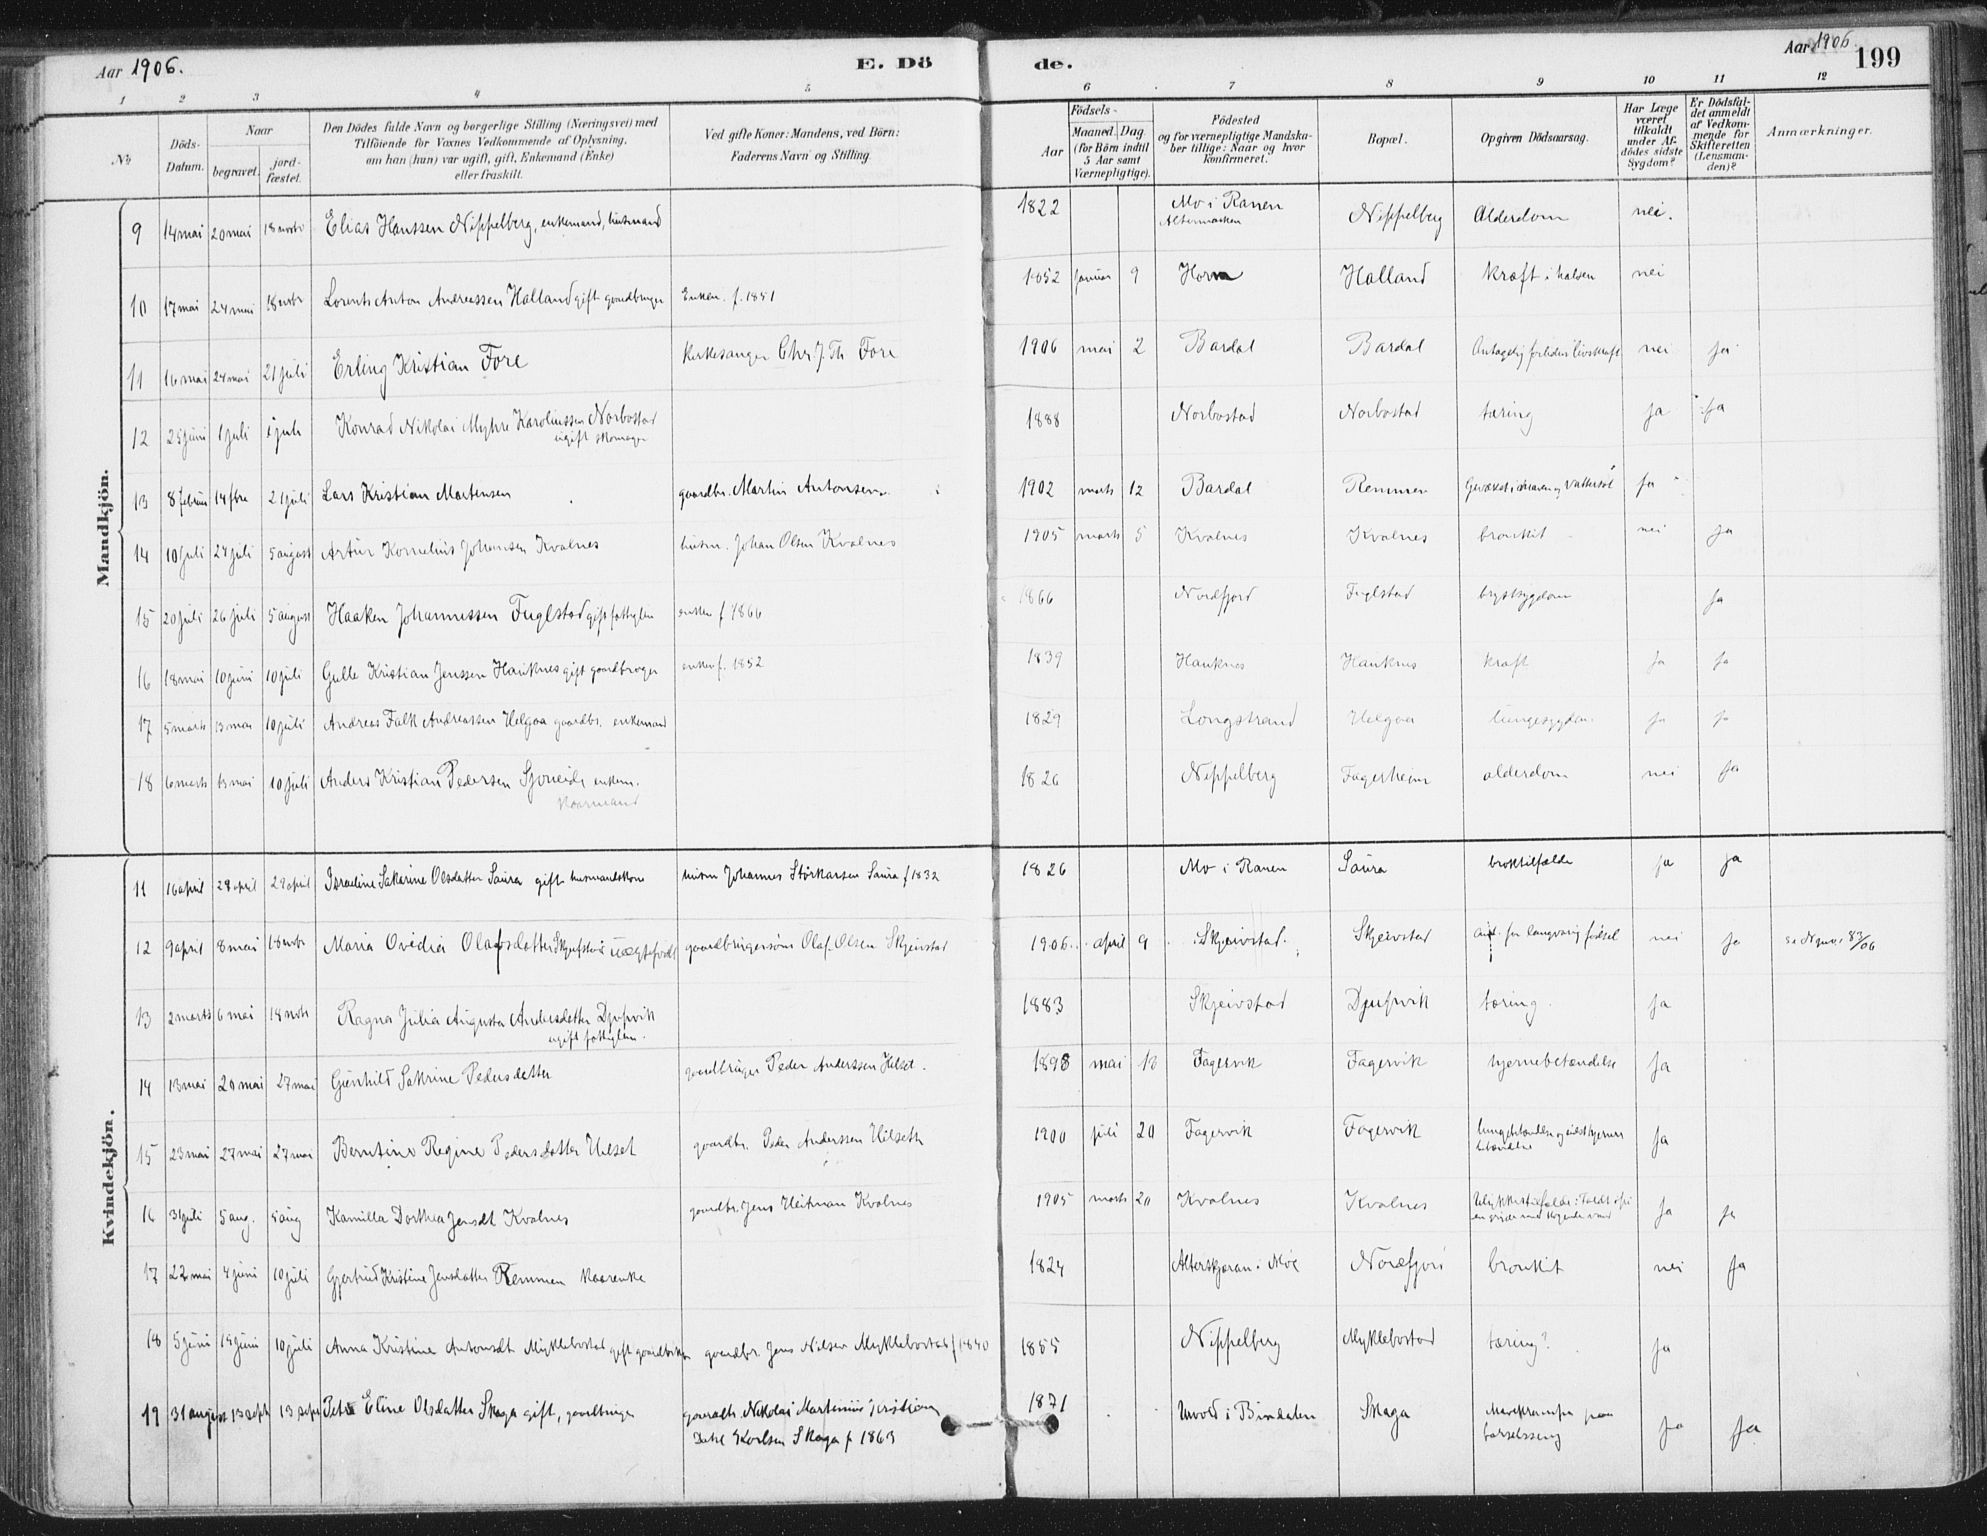 Aar 1906. E. Dö de. Aar 1906. 199
1 2 3 4 5 6 7 8 9 10 11 12
No Döds-Datum. Naar begravet. jord-fæstet. Den Dödes fulde Navn og borgerlige Stilling (Næringsvei) med Tilföiende for Voxnes Vedkommende af Oplysning, om han (hun) var ugift, gift, Enkemand (Enke) eller fraskilt. Ved gifte Koner: Mandens, ved Börn: Faderens Navn og Stilling. Aar Födsels- Maaned. Dag. (for Börn indtil 5 Aar samt Værnepligtige). Födested og for værnepligtige Mandska-ber tillige: Naar og hvor konfirmeret. Bopæl. Opgiven Dödsaarsag. Har Læge været tilkaldt under Af-dödes sidste Sygdom? Er Dödsfal-det anmeldt af Vedkom-mende for Skifteretten (Lensman-den)? Anmærkninger.
Mandkjön.
9 14 mai 20 mai 18 novbr Elias Hanssen Nippelberg, enkemand, husmand 1822 Mo i Ranen Altermarken Nippelberg Alderdom nei.
10 17 mai 24 mai 18 novbr Lorents Anton Andreassen Halland gift gaardbruger Enken f. 1851 1852 januar 9 Horn Halland kræft i halsen nei
11 16 mai 24 mai 21 juli Erling Kristian Fore Kirkesanger Chr. J. Th. Fore 1906 mai 2 Bardal Bardal Antagelig forliden livskraft nei ja
12 25 juni 1 juli 1 juli Konrad Nikolai Myhre Karoliussen Norbostad ugift skomager 1888 Norbostad Norbostad tæring ja ja
13 8 februar 14 fbr 21 juli Lars Kristian Martensen gaardbr. Martin Antonsen 1902 marts 12 Bardal Remmen ja
14 10 juli 24 juli 5 august Artur Kornelius Johansen Kvalnes husm. Johan Olsen Kvalnes 1905 marts 5 Kvalnes Kvalnes bronkit nei ja
15 20 juli 26 juli 5 august Haaken Johannessen Fuglstad gift fattiglem enken f 1866 1866 Nordfjord Fuglstad brystsygdom ja
16 18 mai 10 juni 10 juli Gulle Kristian Jenssen Hauknes gift gaardbruger enken f. 1852 1839 Hauknes Hauknes kræft ja ja
17 5 marts 13 mai 10 juli Andreas Falk Andreassen Helgaa gaardbr. enkemand 1829 Longstrand Helgaa lungesygdom ja ja
18 6 marts 13 mai 10 juli Anders Kristian Pedersen Sjoneide enkem. kaarmand 1826 Nippelberg Fagerheim alderdom nei ja
Kvindekjön.
11 16 april 29 april 29 april Israeline Sakarine Olsdatter Saura gift husmandskone husm Johannes Storkarsen Saura f 1832 1826 Mo i Ranen Saura broktilfælde ja ja
12 9 april 8 mai 18 novbr Maria Ovidia Olafsdatter Skjeivstad uægtefødt gaardbrugersøn Olaf Olsen Skjeivstad 1906 april 9 Skjeivstad Skjeivstad for langvarig fødsel nei ja 83/06
13 2 marts 6 mai 18 novb Ragna Julia Augusta Andersdatter Djupvik ugift fattiglem 1883 Skjeivstad Djupvik tæring ja
14 13 mai 20 mai 27 mai Gunhild Sakrine Pedersdatter gaardbruger Peder Anderssen Hilset 1898 mai 18 Fagervik Fagervik hjernebetændelse ja
15 23 mai 27 mai 27 mai Berntine Regine Pedersdatter Hilset gaardbr. Peder Anderssen Hilseth 1900 juli 20 Fagervik Fagervik lungebetændelse og sidst hjerne betændelse ja
16 31 juli 5 aug. 5 aug Kamilla Dorthea Jensdt Kvalnes gaardbr. Jens Heitman Kvalnes 1905 marts 20 Kvalnes Kvalnes Ulykkestilfælde: Faldt i en gryde med kogende vand ja ja
17 22 mai 4 juni 10 juli Gjertrud Kristine Jensdatter Remmen kaarenke 1824 Alterskjæran i Mo Nordfjord bronkit nei ja
18 5 juni 14 juni 10 juli Anna Kristine Antonsdt Myklebostad gift gaardbrkn gaardbr. Jens Nilsen Myklebostad f 1840 1855 Nippelberg Myklebostad tæring? ja
19 31 august 13 septb 13 septb Petra Eline Olsdatter Skaga gift, gaardbruger gaardbr. Nikolai Martinius Kristian Karlsen Skaga f 1863 1871 i Bindalen Skaga Mavekrampe paa barselseng ja ja